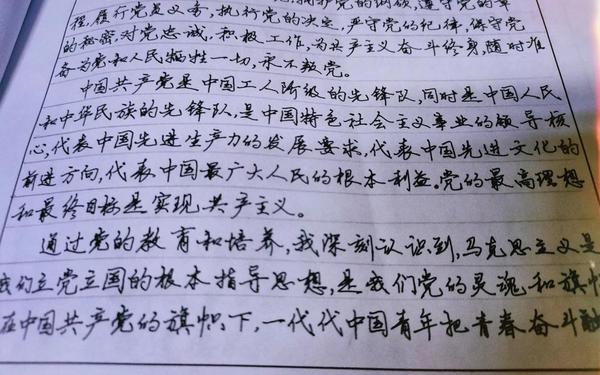 拥护党的纲领,遵守党的章
程,履行党员义务,执行党的决定,严守党的纪律,保守党
的秘密,对党忠诚,积极工作,为共产主义奋斗终身,随时准
备为党和人民牺牲一切,永不叛党。
中国共产党是中国工人阶级的先锋队,同时是中国人民
和中华民族的先锋队,是中国特色社会主义事业的领导核
心,代表中国先进生产力的发展要求,代表中国先进文化的
前进方向,代表中国最广大人民的根本利益。党的最高理想
和最终目标是实现共产主义。
通过党的教育和培养,我深刻认识到,马克思主义是
我们立党立国的根本指导思想,是我们党的灵魂和旗帜
在中国共产党的旗帜下,一代代中国青年把青春奋斗融